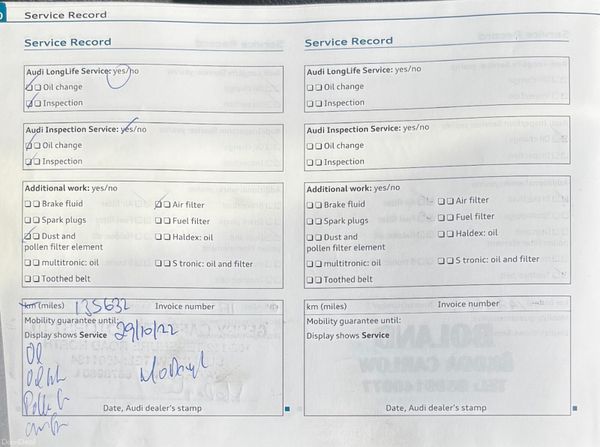 Service Record
Service Record
Audi LongLife Service: yes/no
Oil change
Inspection
Audi Inspection Service: yes/no
Oil change
Inspection
Additional work: yes/no
Brake fluid
Air filter
Spark plugs
Fuel filter
Dust and
pollen filter element
Haldex: oil
multitronic: oil
S tronic: oil and filter
Toothed belt
km (miles) 135632 Invoice number
Mobility guarantee until:
Display shows Service 29/10/22
Oil
Date, Audi dealer's stamp
Service Record
Audi LongLife Service: yes/no
Oil change
Inspection
Audi Inspection Service: yes/no
Oil change
Inspection
Additional work: yes/no
Brake fluid
Air filter
Spark plugs
Fuel filter
Dust and
pollen filter element
Haldex: oil
multitronic: oil
S tronic: oil and filter
Toothed belt
km (miles) Invoice number
Mobility guarantee until:
Display shows Service
Date, Audi dealer's stamp
DoneDeal